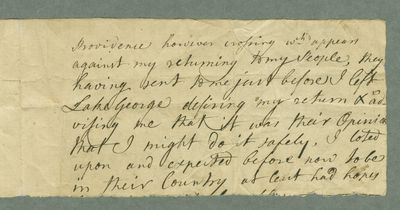 Providence however crossing wch. appears
against my returning to my People, they
having sent to me just before I left
Lake George desiring my return & ad
vising me that it was their Opinion
that I might do it safely. I
upon and expected before now to be
in their Country at least had hopes